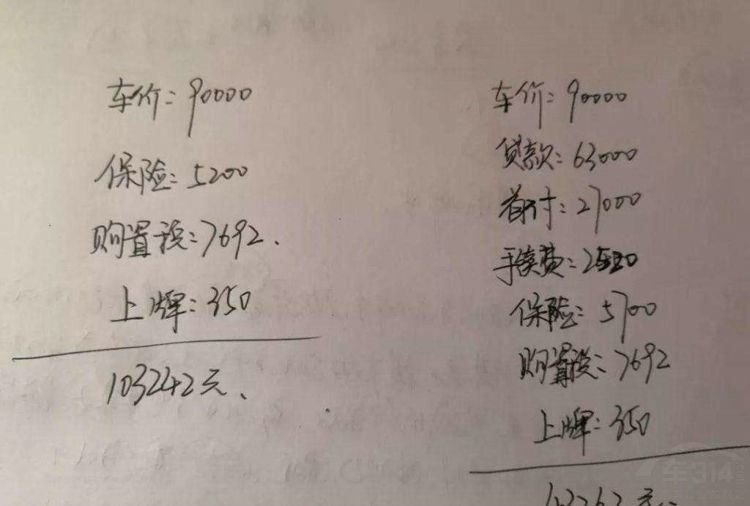 车价:90000
保险:5200
购置税:7692.
上牌:350
103242元.
车价:90000
贷款:63000
首付:27000
手续费:2520
保险:5700
购置税:7692
上牌:350
车314